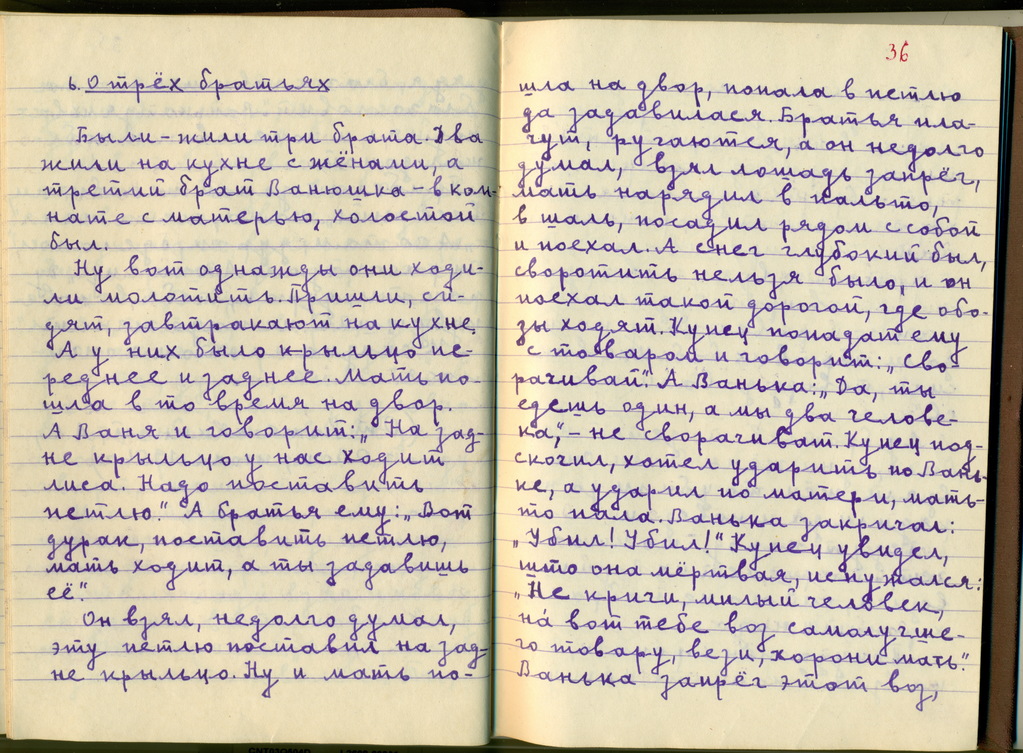 6. О трёх братьях
Были-жили три брата. Два
жили на кухне с жёнами, а
третий брат Ванюшка – в ком-
нате с матерью, холостой
был.
Ну вот однажды они ходи-
ли молотить. Пришли, си-
дят, завтракают на кухне.
А у них было крыльцо пе-
реднее и заднее. Мать по-
шла в то время на двор.
А Ваня и говорит: „На зад-
не крыльцо у нас ходит
лиса. Надо поставить
петлю." А братья ему: „Вот
дурак, поставить петлю,
мать ходит, а ты задавишь
её."
Он взял, недолго думал,
эту петлю поставил на зад-
не крыльцо. Ну и мать по-
36
шла на двор, попала в петлю
да задавилася. Братья пла-
чут, ругаются, а он недолго
думал, взял лошадь запрёг,
мать нарядил в пальто,
в шаль, посадил рядом с собой
и поехал. А снег глубокий был,
своротить нельзя было, и он
поехал такой дорогой, где обо-
зы ходят. Купец попадат ему
с товаром и говорит: „Сво-
рачивай." А Ванька: „Да, ты
едешь один, а мы два челове-
ка", – не сворачиват. Купец под-
скочил, хотел ударить по Вань-
ке, а ударил по матери, мать-
то пала. Ванька закричал:
„Убил! Убил!" Купец увидел,
што она мёртвая, испужался:
„Не кричи, милый человек,
на́ вот тебе воз самолучше-
го товару, вези, хорони мать."
Ванька запрёг этот воз,